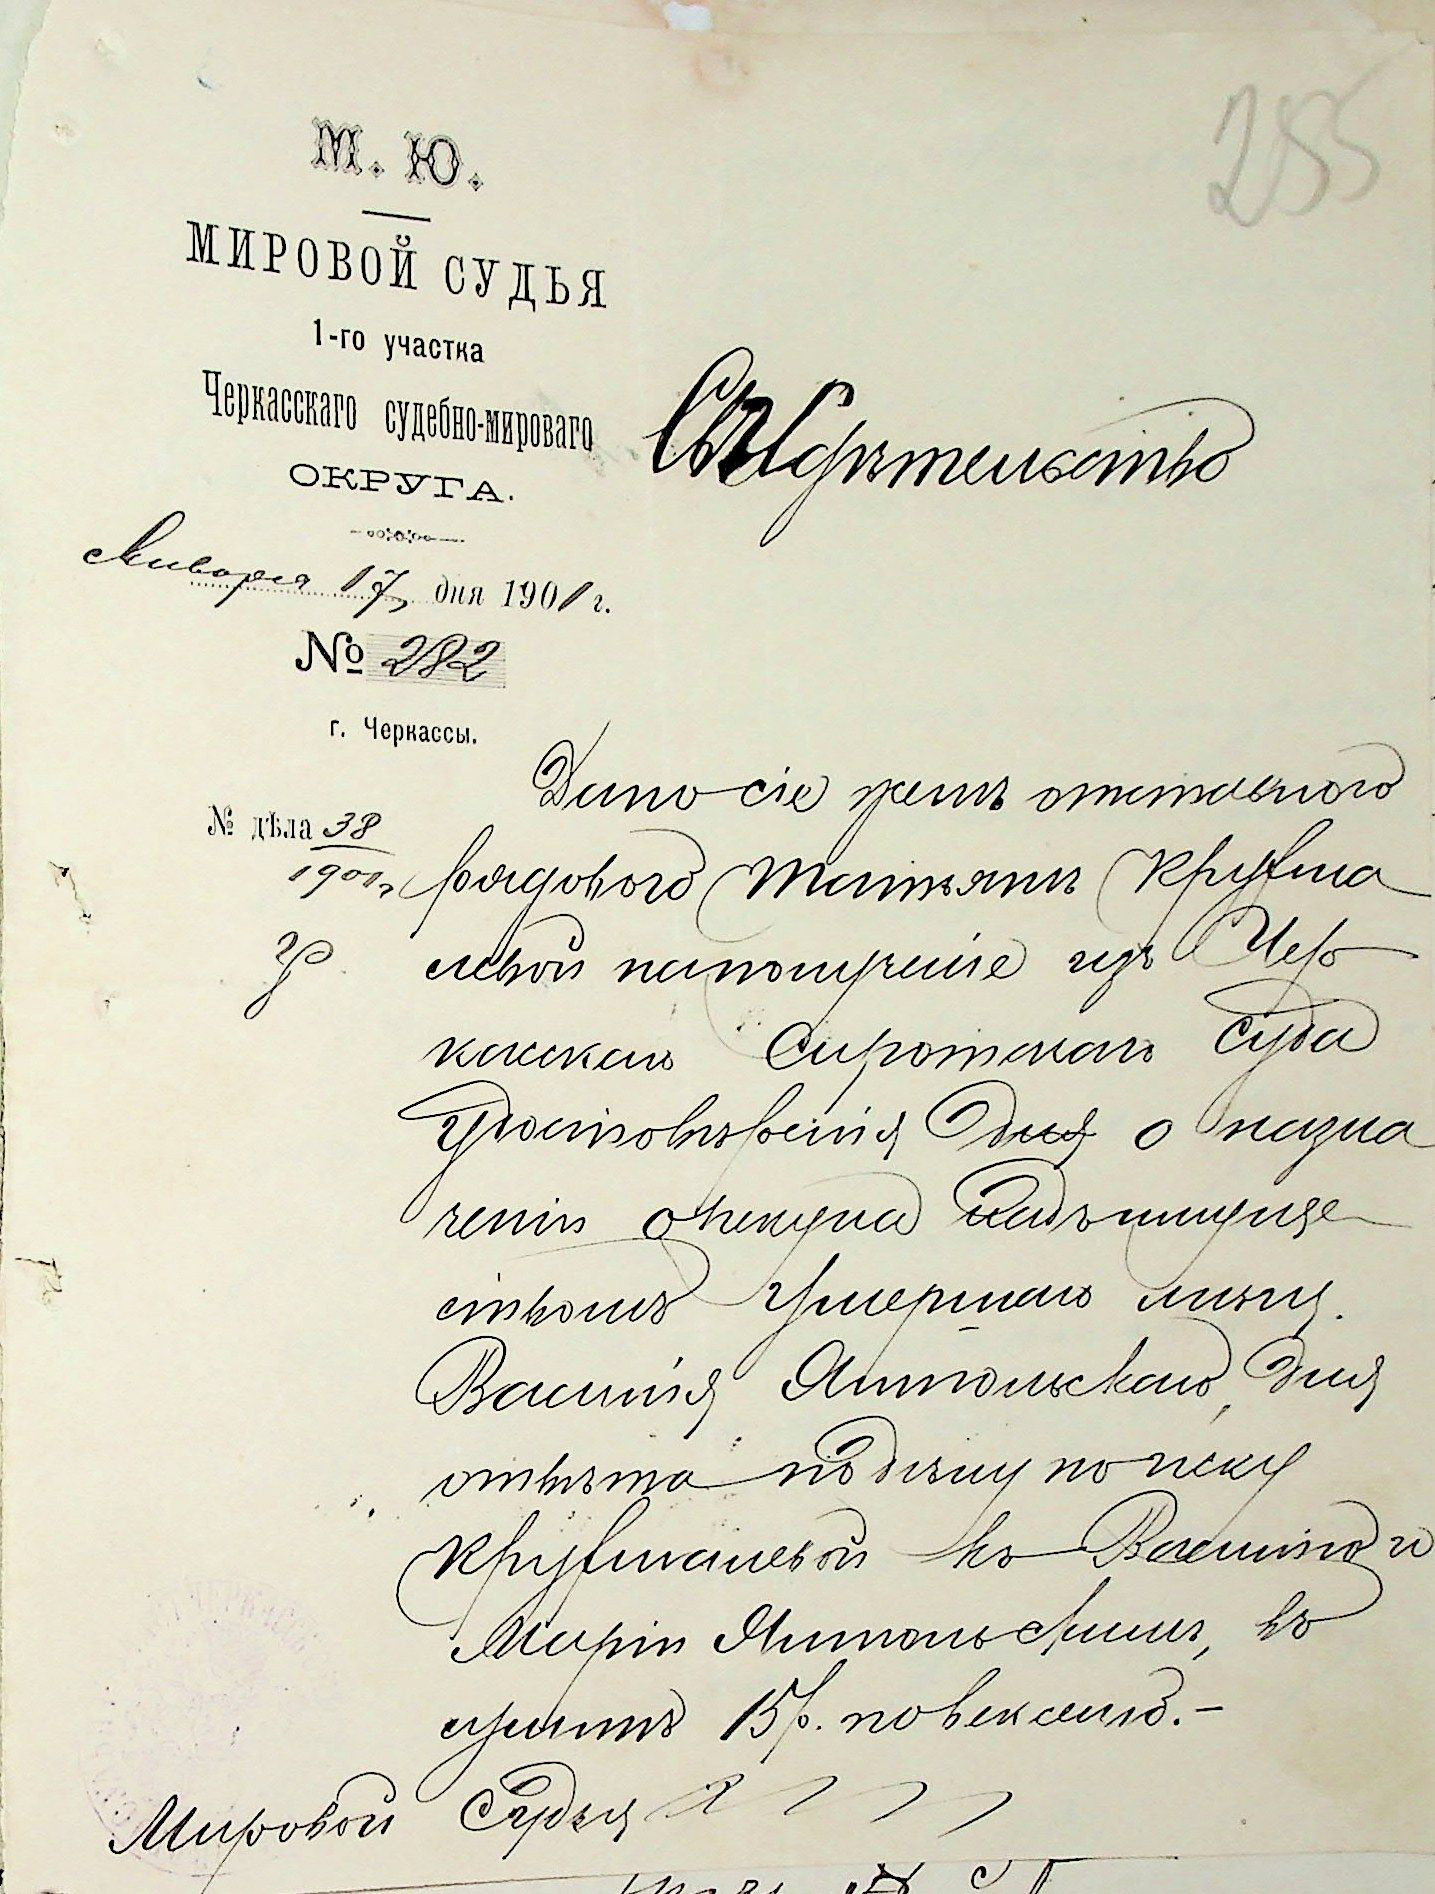 255
М. Ю.
МИРОВОЙ СУДЬЯ
1-го участка
Черкасскаго судебно-мироваго
ОКРУГА.
Января 17 дня 1901 г.
№ 282
г. Черкассы.
№ дѣла 38
1901 г.
Свидѣтельство
Дано сіе женѣ отставного
рядового Татьянѣ Кругла
левой на получение изъ Чер
касскаго Сиротскаго Суда
удостовѣренія для о назна
ченіи опекуна надъ имуще
ствомъ умершаго
Василія Ятпольскаго, для
отвѣта по дѣлу по иску
къ Василію и
Маріи Ятпольскимъ, въ
суммѣ 15 р. по векселю.-
Мировой Судья